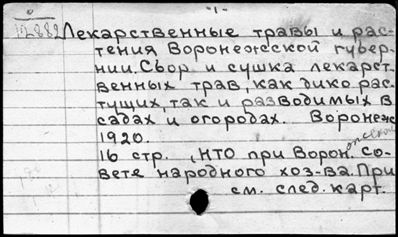 -1-
12882 Лекарственные травы и рас-
тения Воронежской губер-
нии. Сбор и сушка лекарст-
венных трав, как дико рас-
тущих, так и разводимых в
садах и огородах. Воронеж
1920.
16 стр. , НТО при Ворон. со-
вете народного хоз-ва. При
см. след. карт.